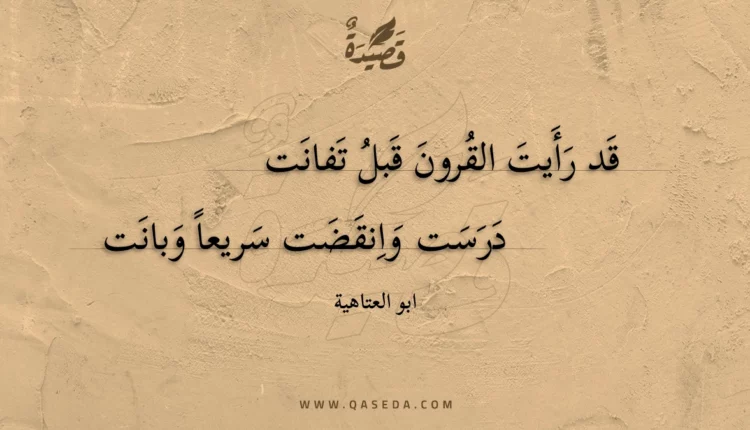 قَصِيدَةٌ
قَد رَأَيتَ القُرونَ قَبلُ تَفانَت
دَرَسَت وَاِنقَضَت سَريعاً وَبانَت
ابو العتاهية
WWW.QASEDA.COM